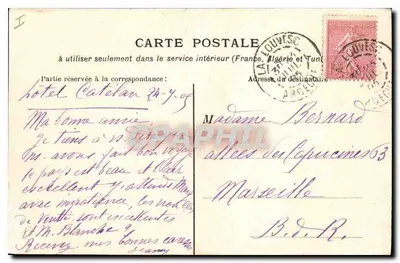 I
CARTE POSTALE
à utiliser seulement dans le service intérieur (France, Algérie et Tun
Partie réservée à la correspondance:
Adresse du destinataire
LALOUVESC
ARDECHE
Hotel Catelan 24-7-05
Ma bonne amie,
Je tiens à
avons fait bon voyage
le pays est beau et l'air
excellent j'attends Mar
avec impatience, les nouvelles
de vente sont excellentes
et M. Blanche ?
Recevez mes bonnes caresses
Madame Bernard
allées des Capucines 63
Marseille
B.d.R.